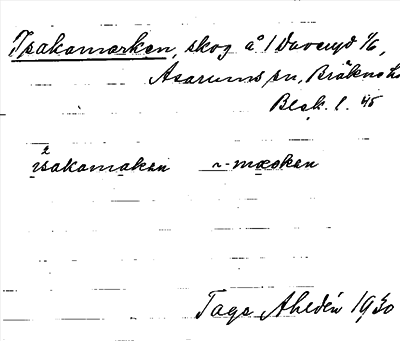 Isakamarken, skog å 1 Daveryd 1/6,
Asarums sn, Bräkne h.
Blek. l. 45
2
isakamakan ~-marken
Tage Ahldén 1930